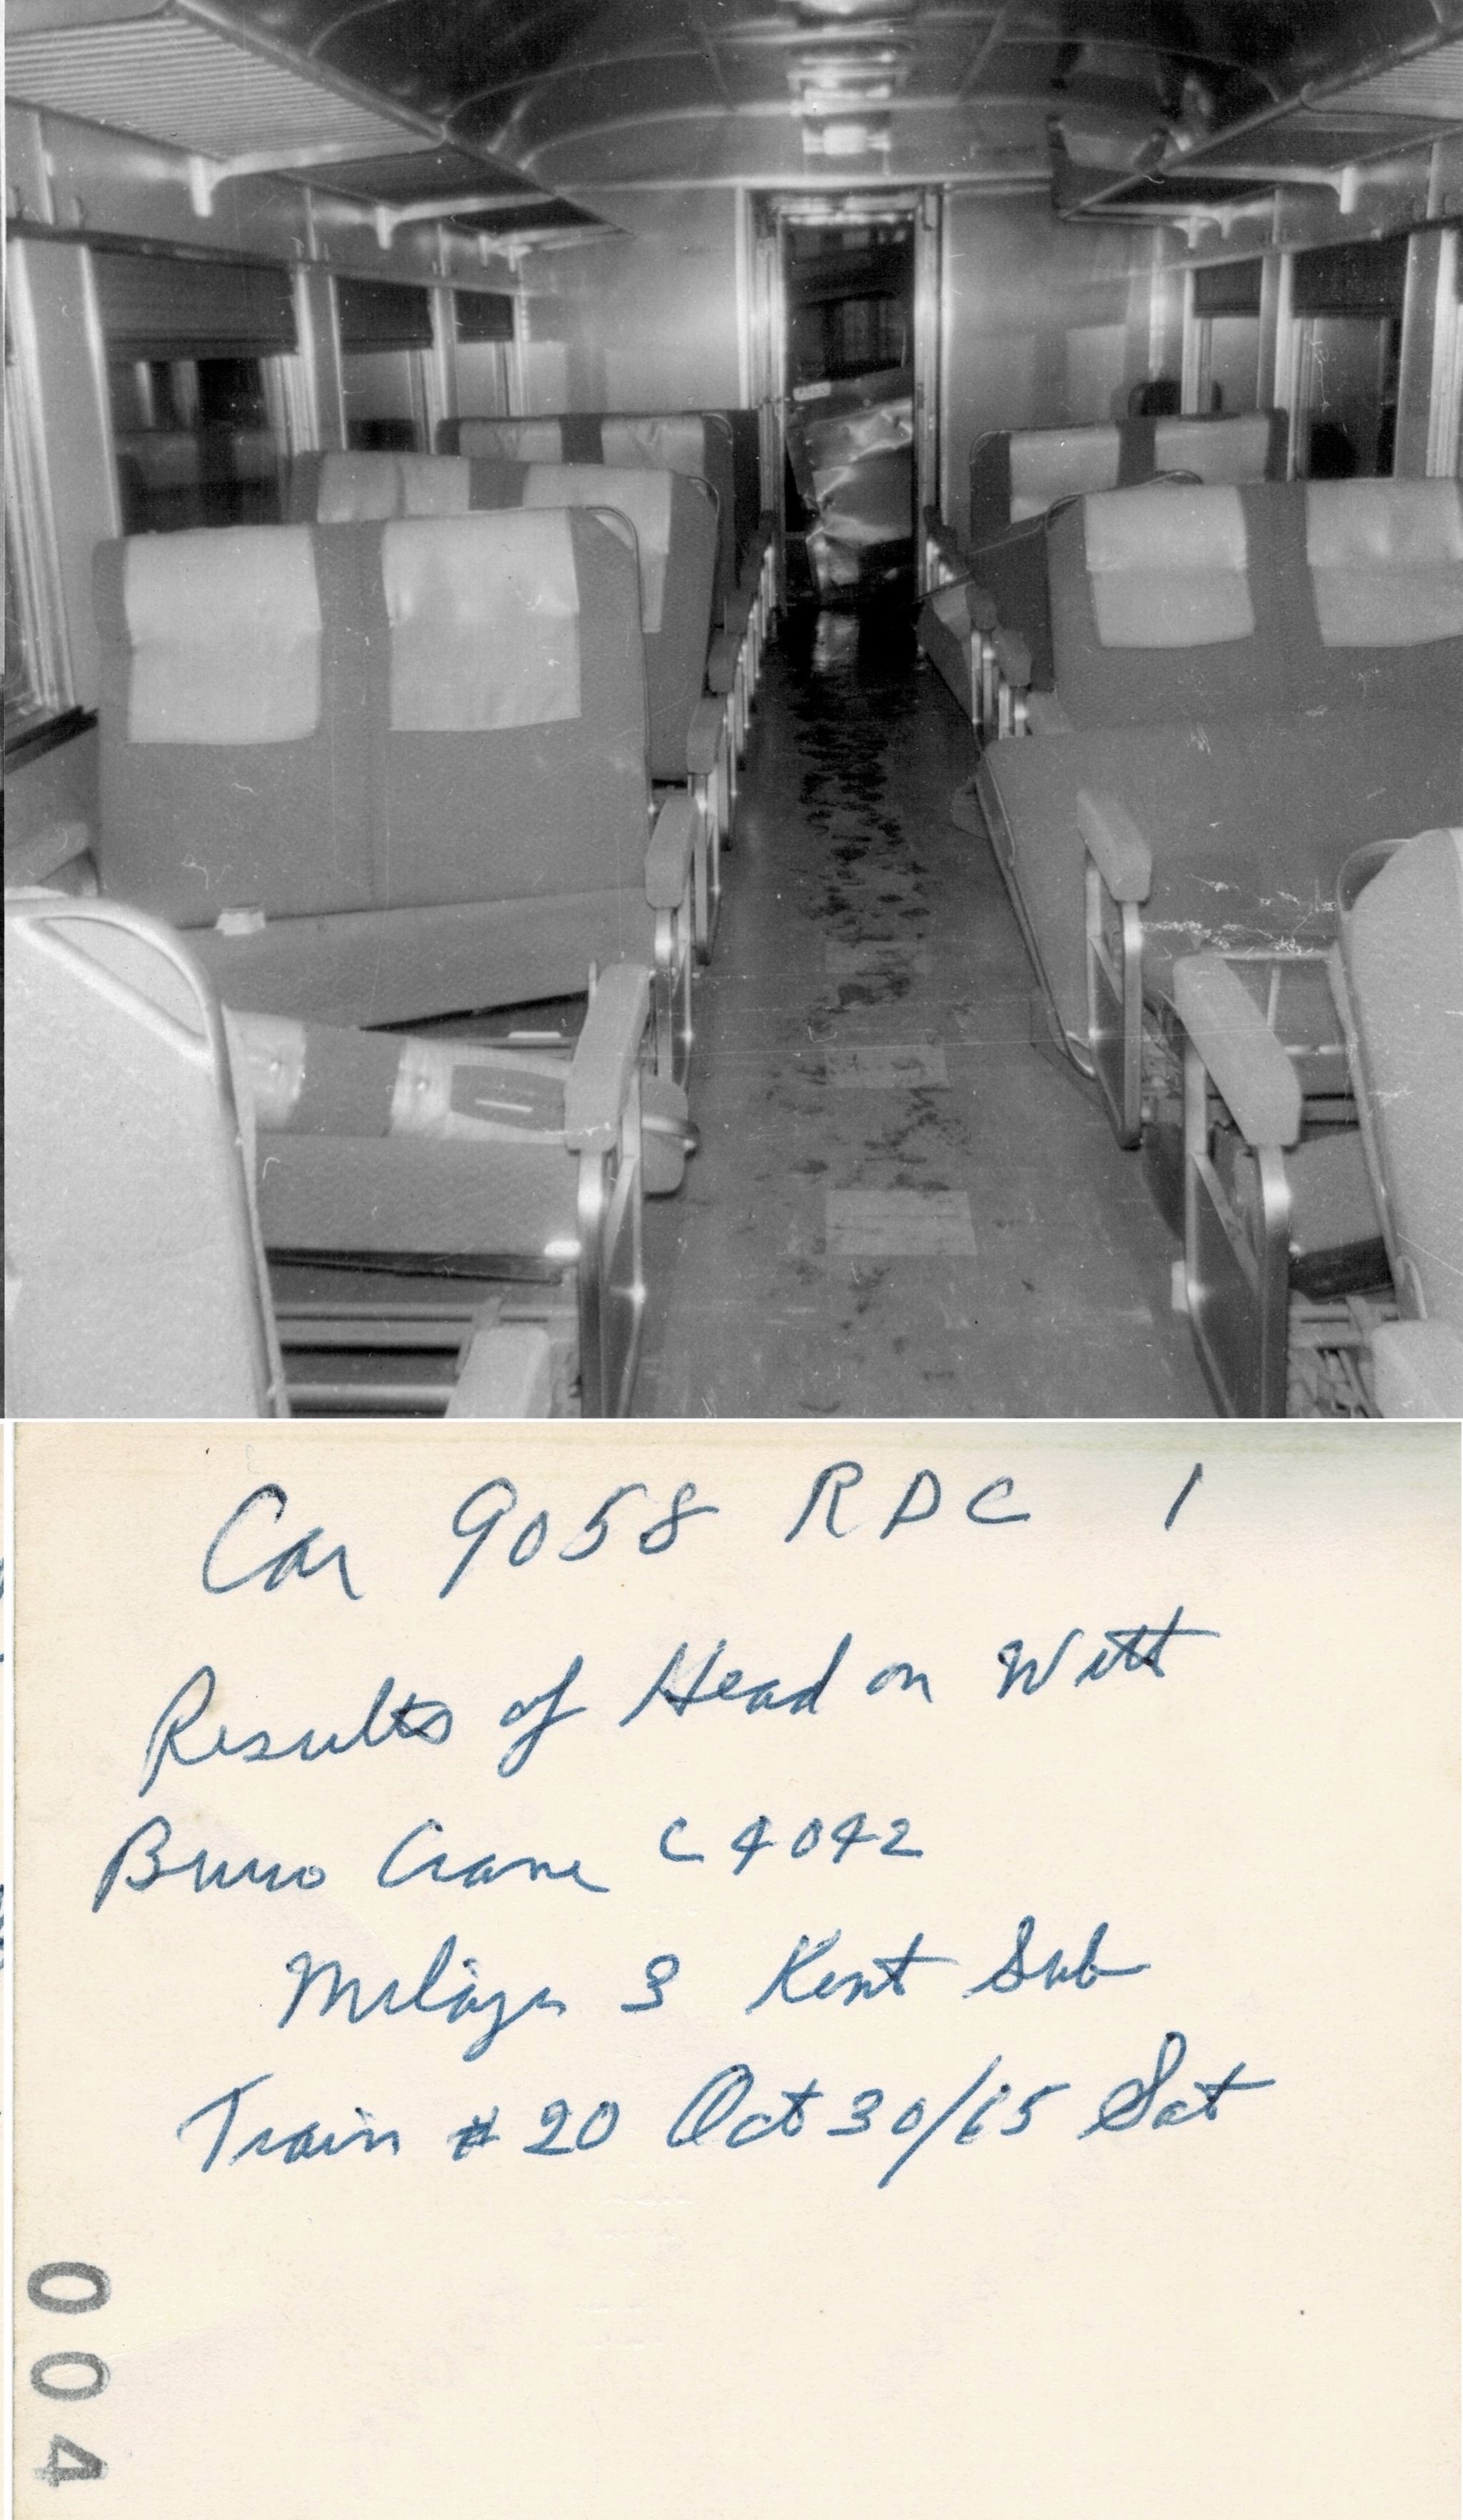 Car 9058 RDC 1
Results of Head on With
Burro Crane C4042
Milage 3 Kent Sub
Train # 20 Oct 30/65 Sat
004